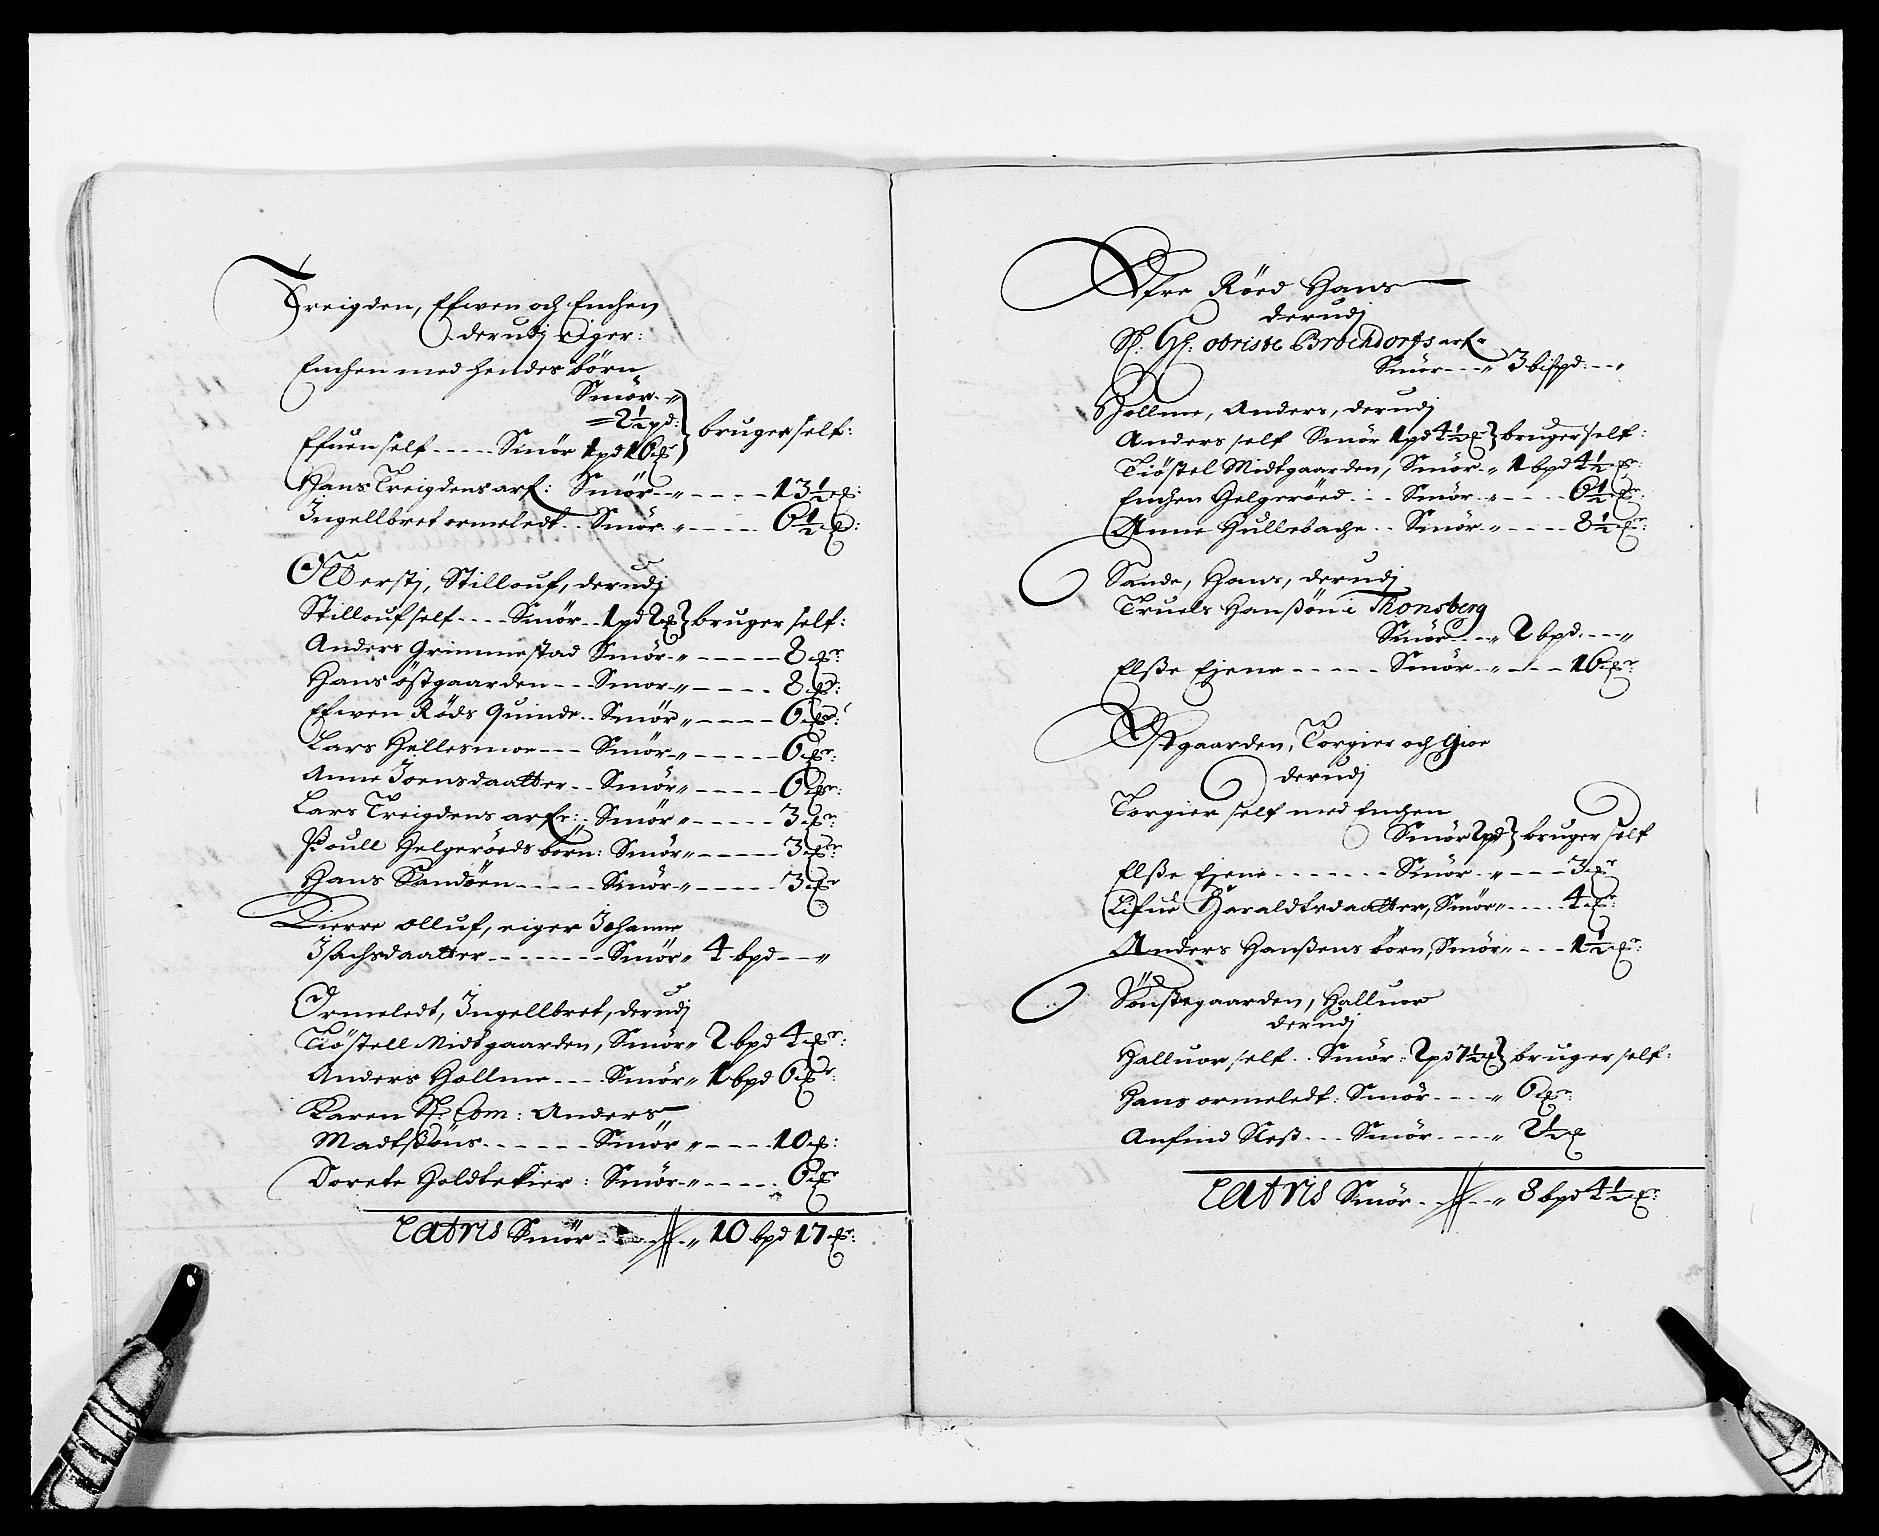 Treigden, Efwen och Enchen
derudj Eiger:
Enchen med hendes börn
Smör „
= 2½ pd:
Efuen self ----- Smör 1 pd 16 } bruger self:
Hans Treigdens arf: Smör -- „ ----- 13½
Ingellbret ormeledt .. Smör „ ----- 6½
Olderstj, Stillouf, derudj
Stillouf self ---- Smör .. 1 pd 2 } bruger self:
Anders Grimmestad Smör „ ----- 8
Hans östgaarden --- Smör „ ----- 8
Efwen Röds Quinde .. Smör „ ----- 6
Lars Hellesmoe --- Smör „ ----- 6
Anne Joensdaatter .. Smör „ ----- 6
Lars Treigdens arfr: . Smör „ ----- 3
Poull Helgeröeds börn: Smör „ ----- 3
Hans Sandöen ----- Smör „ ----- 3
Kierre olluf, eiger Johanne
Isachsdaatter ------- Smör „ 4 bpd --- „
Ormeledt, Ingellbret, derudj
Tiöstell Midtgaarden, Smör „ 2 bpd 4
Anders Hollme --- Smör „ 1 bpd 6
Karen Sl: Com: Anders
Madtßöns ------ Smör „ ---- 10
Dorete Holdtekier: Smör „ ----- 6
Latris Smör ---- „ 10 bpd 17
Öfre Röed Hans
derudj
Sl: Gl: obriste Brochdorfs arf
Smör --- „ 3 bispd: --- „
Hollme, Anders, derudj
Anders self Smör 1 pd 4½ } bruger self:
Tiöstel Midtgaarden, Smör „ 1 bpd 4½
Enchen Helgeröed ... Smör „ ---- 6½
Anne Hullebache .. Smör „ ---- 8½
Sande, Hans, derudj
Truels Hanßön i Thonsberg
Smör --- „ 2 bpd. --- „
Elße Ejene ----- Smör „ ---- 16
Östgaarden, Torgier och Gioe
derudj
Torgier self med Enchen
Smör 2 pd } bruger self
Elße Ejene ------- Smör „ --- 3
Haraldtzdaatter, Smör „ ---- 4
Anders Hanßens börn, Smör „ --- 1½
Sönstegaarden, Halluor
derudj
Halluor self .. Smör: 2 pd 7½ } bruger self:
Hans ormeledt: Smör ---- „ 6
Anfind Neß --- Smör ---- „
Latris Smör ---- „ 8 bpd 4½